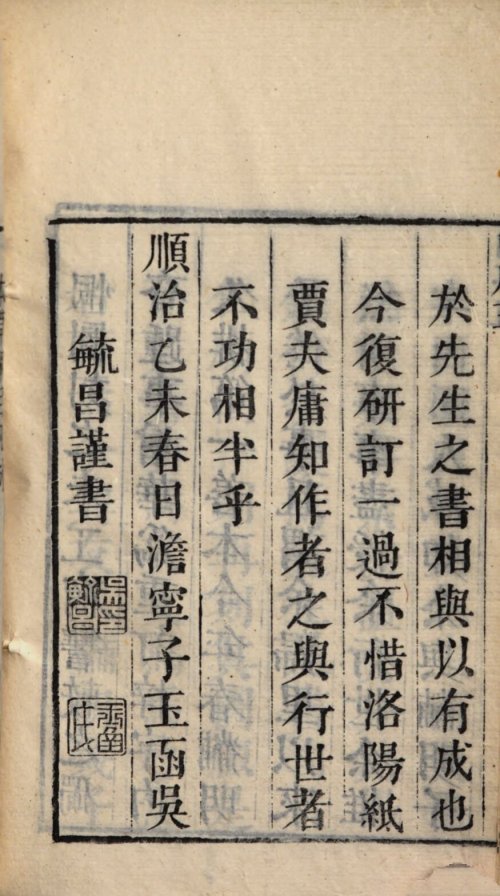 於先生之書相與以有成也
今復研訂一過不惜洛陽紙
賈夫庸知作者之與行世者
不功相半乎
順治乙未春日澹寧子玉函吳
毓昌謹書
吳毓昌印